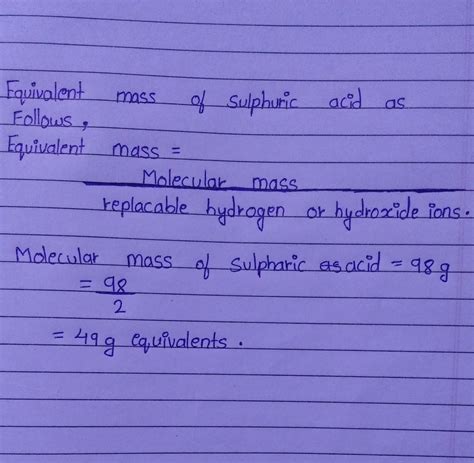 Equivalent mass of sulphuric acid as
Follows,
Equivalent mass =
Molecular mass
replacable hydrogen or hydroxide ions.
Molecular mass of sulpharic as acid = 98g
= 98
2
= 49g equivalents.